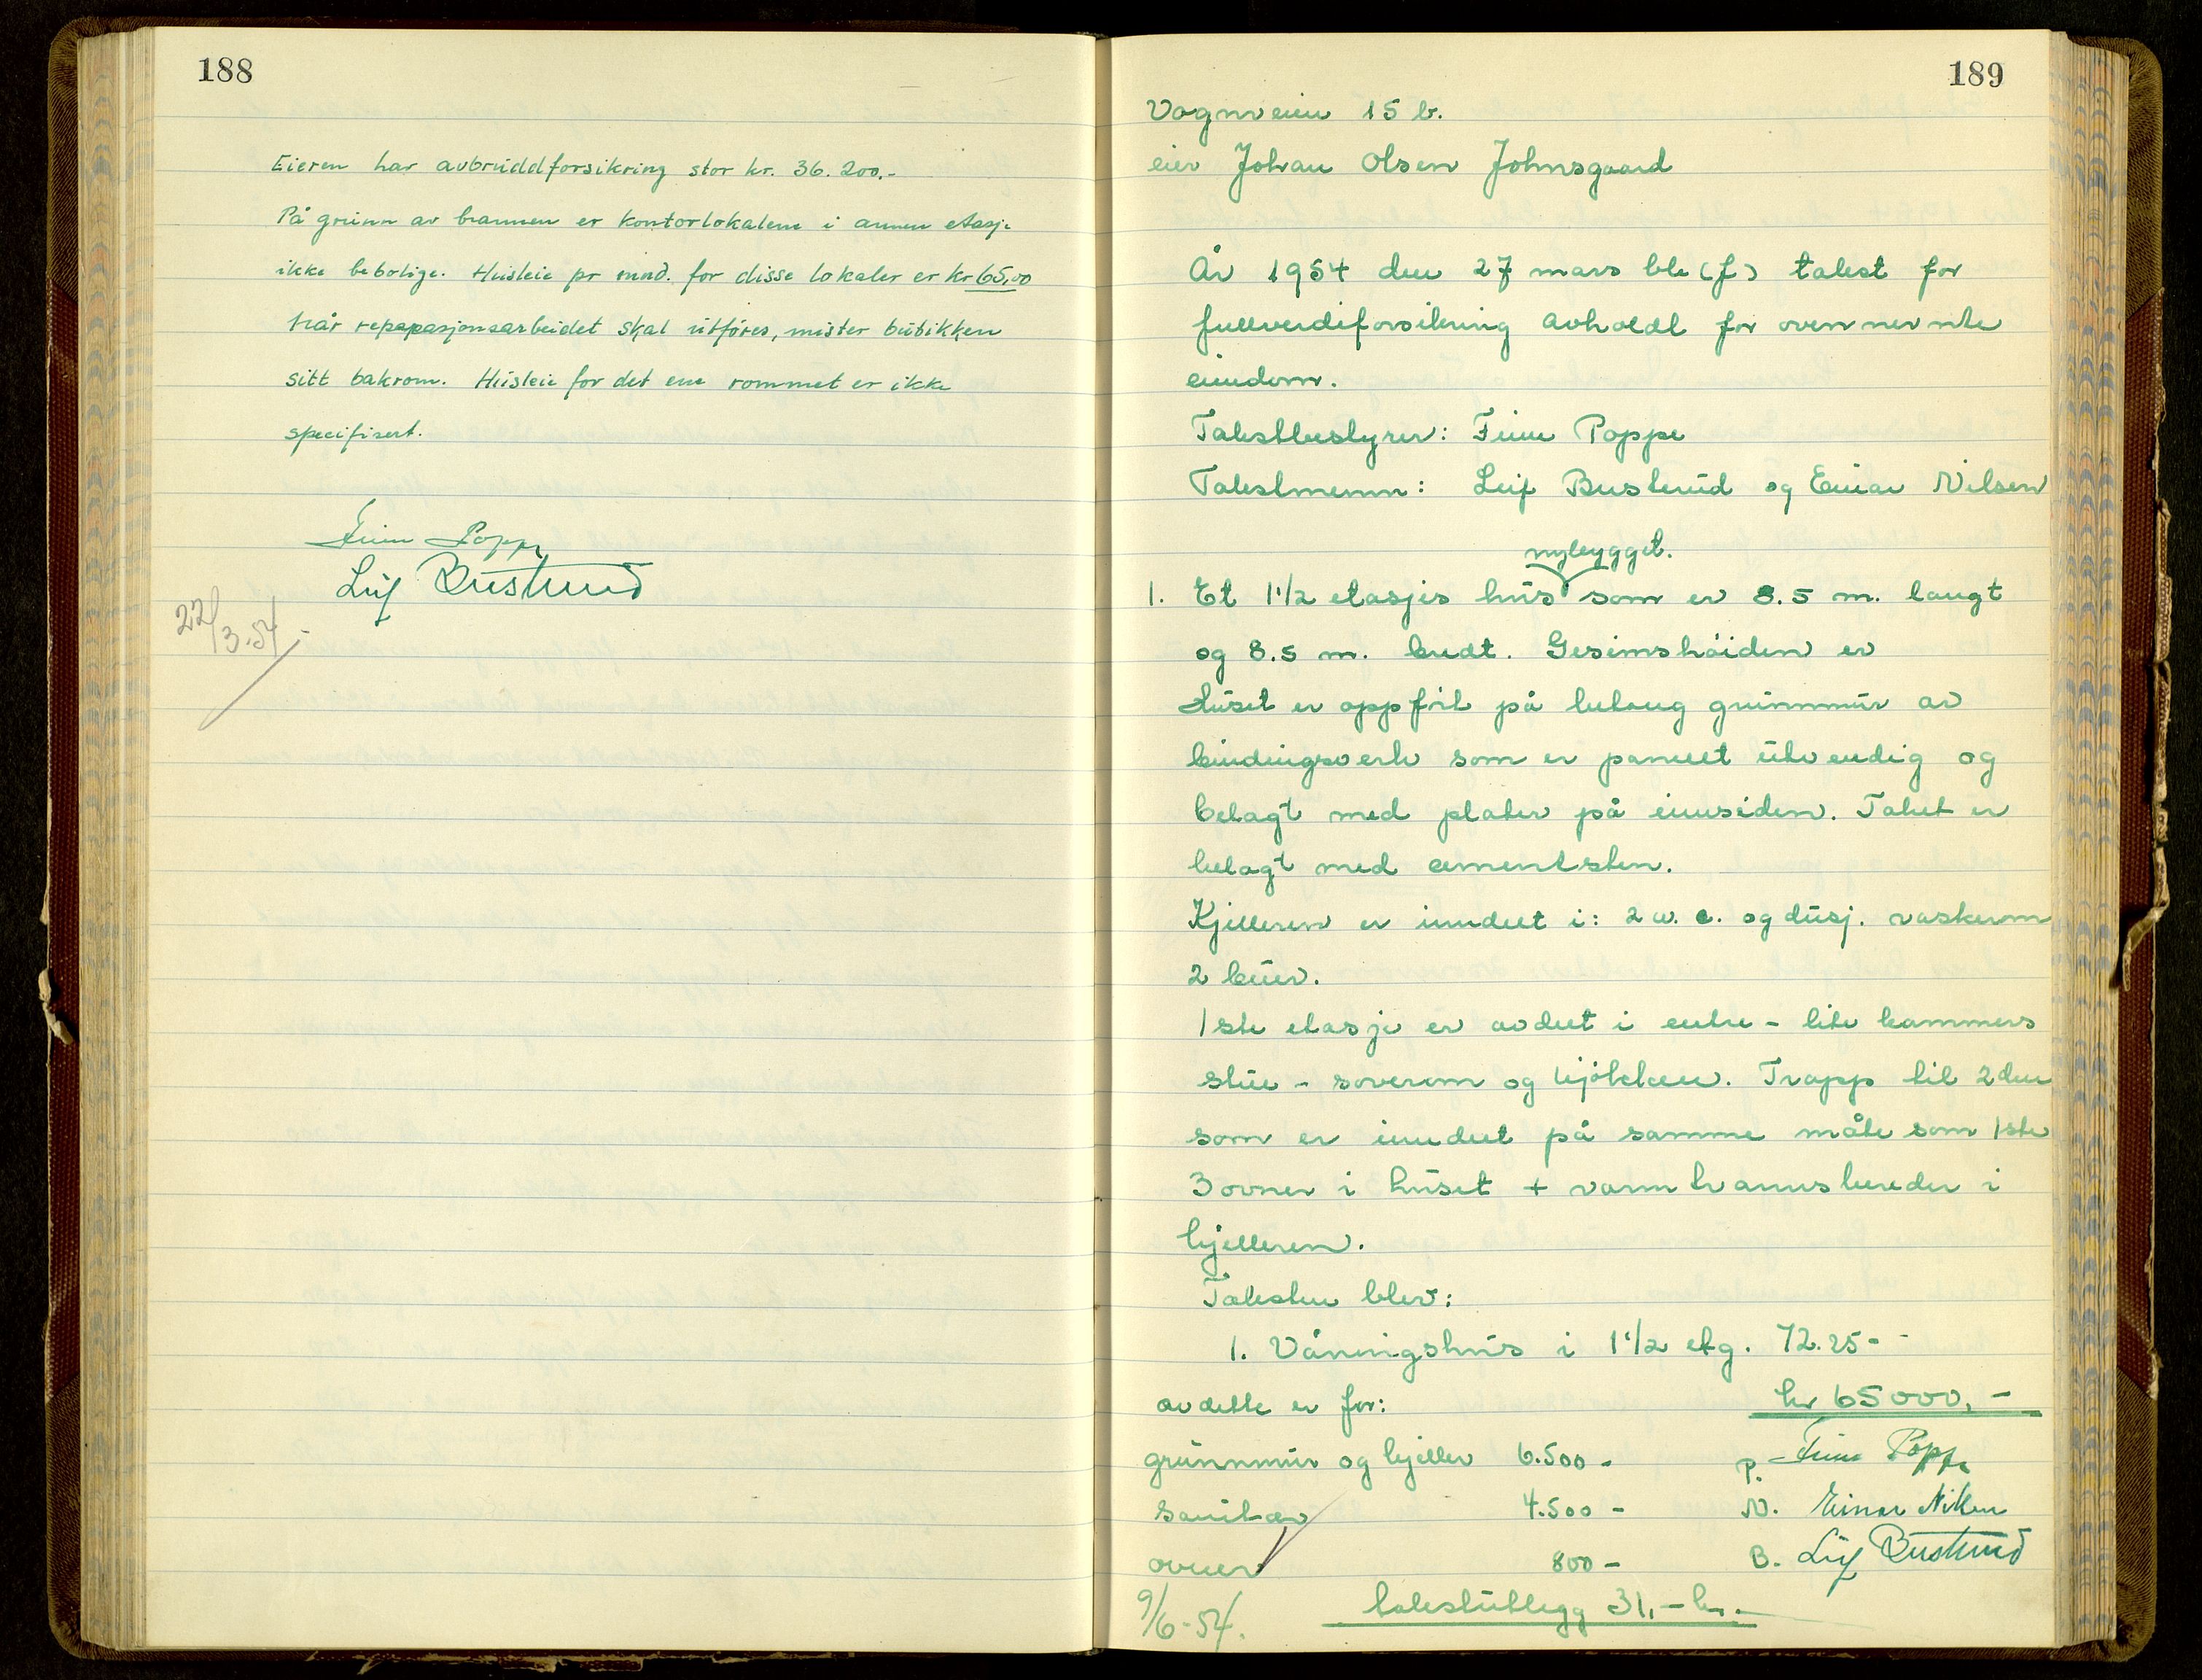 188
Eieren har avbruddforsikring stor kr. 36.200.-
På grunn av brannen er kontorlokalene i annen etasje
ikke bebolige. Husleie pr mnd. for disse lokaler er kr 65,00
Når repapasjonsarbeidet skal utføres, mister butikken
sitt bakrom. Husleie for det ene rommet er ikke
specifisert.
Finn Poppe
Leif Busterud
22/3.54
189
Vognveien 15 b.
eier Johan Olsen Johnsgaard
År 1954 den 27 mars ble (f) takst for
fullverdiforsikring avholdt for ovennevnte
eiendom.
Takstbestyrer: Finn Poppe
Takstmenn: Leif Busterud og Einar Nilsen
nybygget.
1. Et 1 1/2 etasjes hus som er 8.5 m. langt
og 8.5 m. bredt. Gesimshöiden er
Huset er oppført på betong grunnmur av
bindingsverk som er panelt utvendig og
belagt med plater på innsiden. Taket er
belagt med cementsten.
Kjelleren er inndelt i: 2 w.c. og dusj. vaskerom
2 buer.
1ste etasje er avdelt i entre - lite kammers
stue - soverom og kjökken. Trapp til 2den
som er inndelt på samme måte som 1ste
3 ovner i huset + varmtvannsbereder i
kjelleren.
Taksten blev:
1. Våningshus i 1 1/2 etg. 72.25-
av dette er for: kr 65000,-
grunnmur og kjeller 6.500 - P. Finn Poppe
Sanitær 4.500 - N. Einar Nilsen
ovner 800 - B. Leif Busterud
9/6-54. takstutlegg 31,- kr.